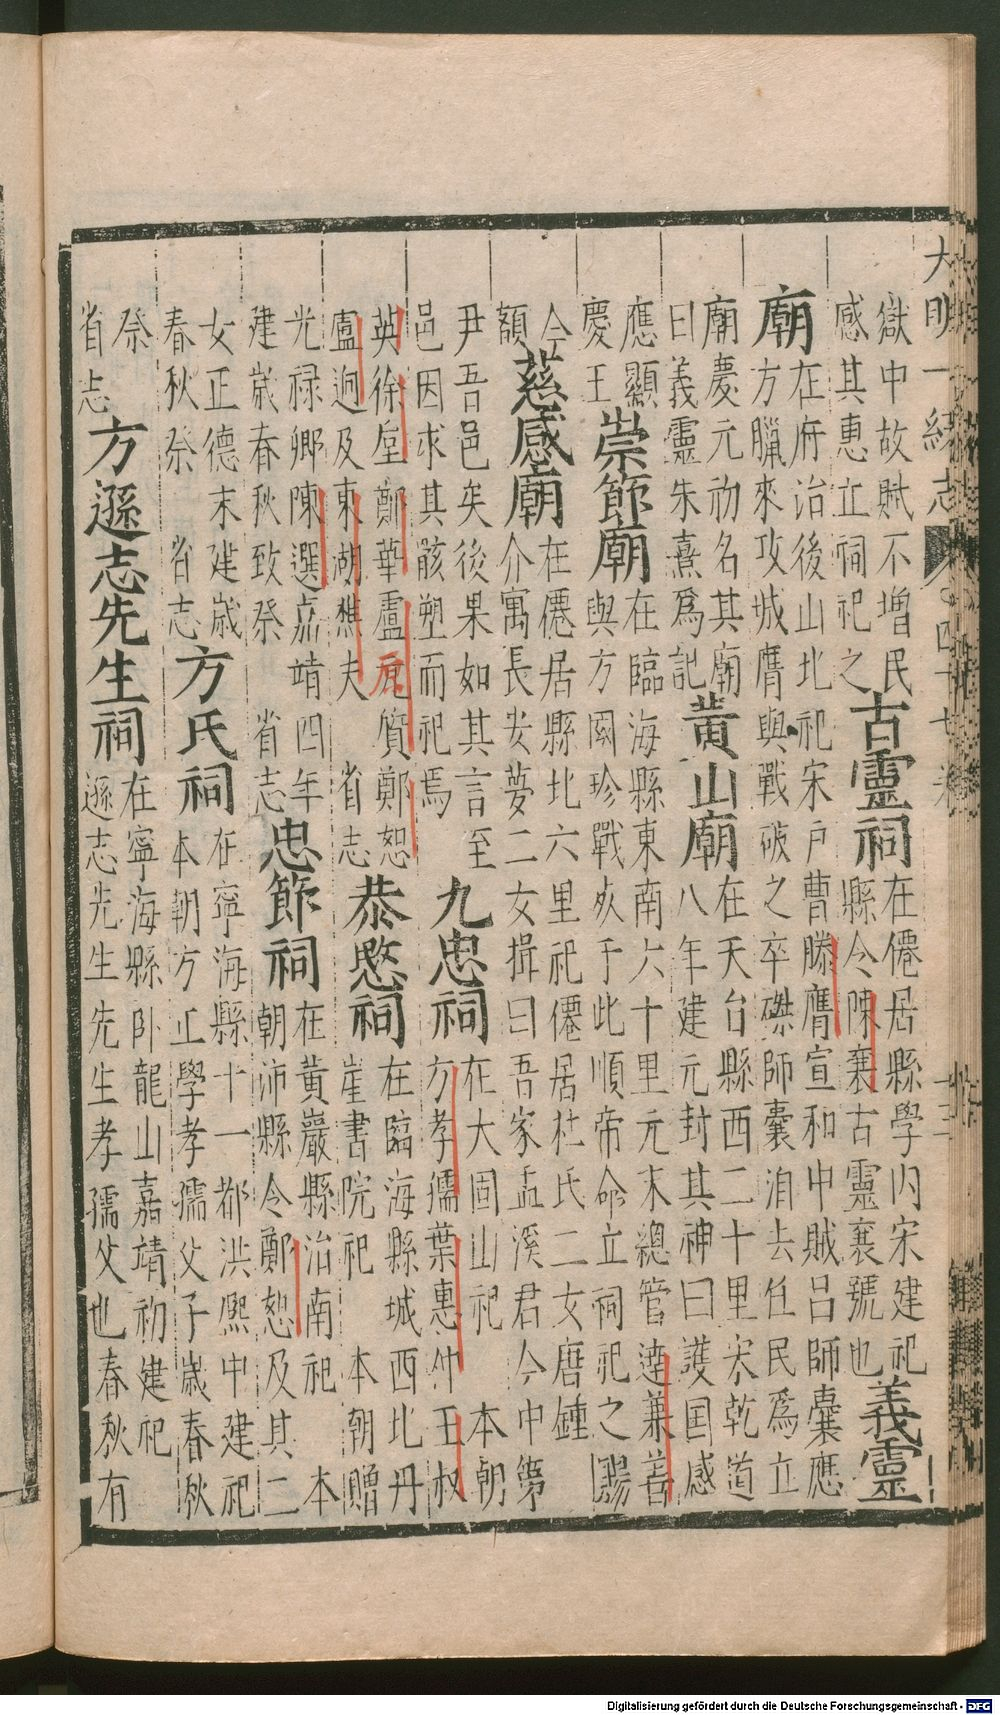 大明一統志 四十七卷 十三
獄中故賦不增民 古靈祠 在僊居縣學内宋建祀
感其惠立祠祀之 縣令陳襄古靈襄號也 義靈
廟 在府治後山北祀宋户曹滕膺宣和中賊吕師囊應
方臘來攻城膺與戰破之卒磔師囊洎去任民為立
廟慶元初名其廟 黃山廟 在天台縣西二十里宋乾道
曰義靈朱熹為記 八年建元封其神曰護国感
應顯 崇節廟 在臨海縣東南六十里元末總管達兼善
慶王 與方國珍戰歿于此順帝命立祠祀之賜
今 慈感廟 在僊居縣北六里祀僊居杜氏二女唐鍾
額 介寓長安夢二女揖曰吾家孟溪君今中第
尹吾邑矣後果如其言至 九忠祠 在大固山祀 本朝
邑因求其骸塑而祀焉 方孝孺葉惠仲王叔
英徐垕鄭華盧原質鄭恕 恭愍祠 在臨海縣城西北丹
盧迥及東湖樵夫 省志 崖書院祀 本朝贈
光禄卿陳選嘉靖四年 忠節祠 在黃巖縣治南祀 本
建歲春秋致祭 省志 朝沛縣令鄭恕及其二
女正德末建歲 方氏祠 在寧海縣十一都洪熙中建祀
春秋祭 省志 本朝方正學孝孺父子歲春秋
祭 方遜志先生祠 在寧海縣卧龍山嘉靖初建祀
省志 遜志先生先生孝孺父也春秋有
原
Digitalisierung gefördert durch die Deutsche Forschungsgemeinschaft - DFG